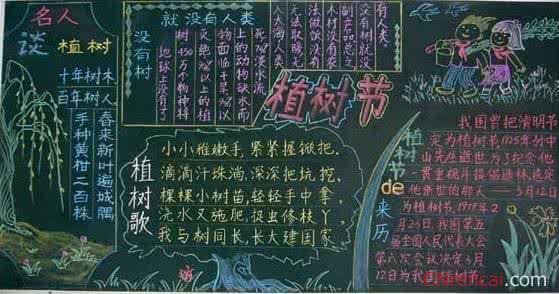 名人
谈 植树
十年树木
百年树人
手种黄柑二百株
春来新叶遍城隅
就没有人类
没有树
地球上没有了
树450万个物种将
灭绝
以上的植
物面临干旱
以上
的动物缺水而
死
淡水流
入大海人类
无法取暖无
法做饭没有
木材没有家
副产品总之
没有树就没
有人类。
植树节
植树歌
小小稚嫩手,紧紧握锹把,
滴滴汗珠淌,深深把坑挖,
棵棵小树苗,轻轻手中拿,
浇水又施肥,捉虫修枝丫,
我与树同长,长大建国家
植树节de来历
我国曾把清明节
定为植树节1925年孙中
山先生逝世为了纪念他
一贯重视并提倡造林,选定
他逝世的那天——3月12日
为植树节,1979年2
月23日,我国第五
届全国人民代表大会
第六次会议决定3月
12日为我国植树节